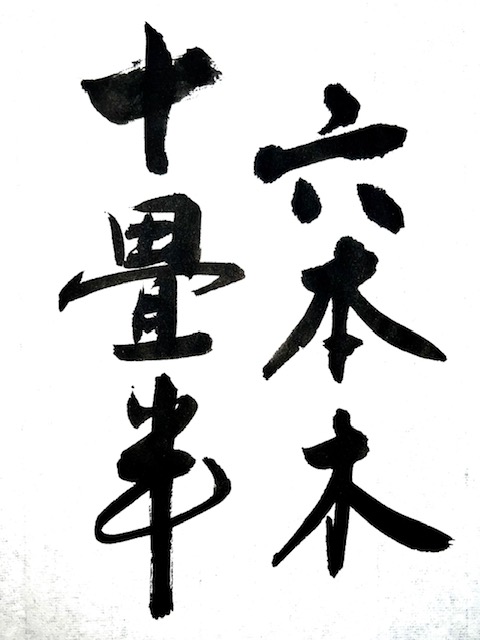 六本木
十畳半